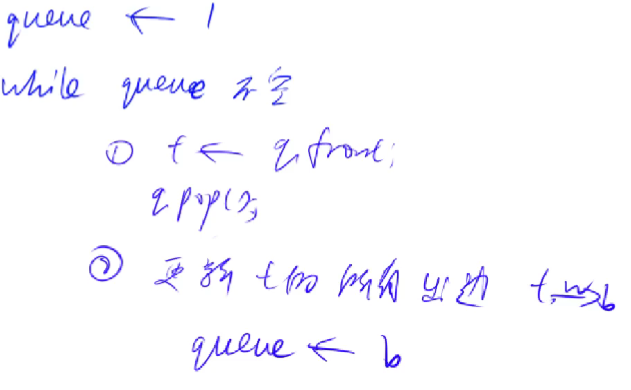 queue ← 1
while queue 不空
① t ← q.front;
q.pop();
② 更新 t 的所有出边 t →w b
queue ← b